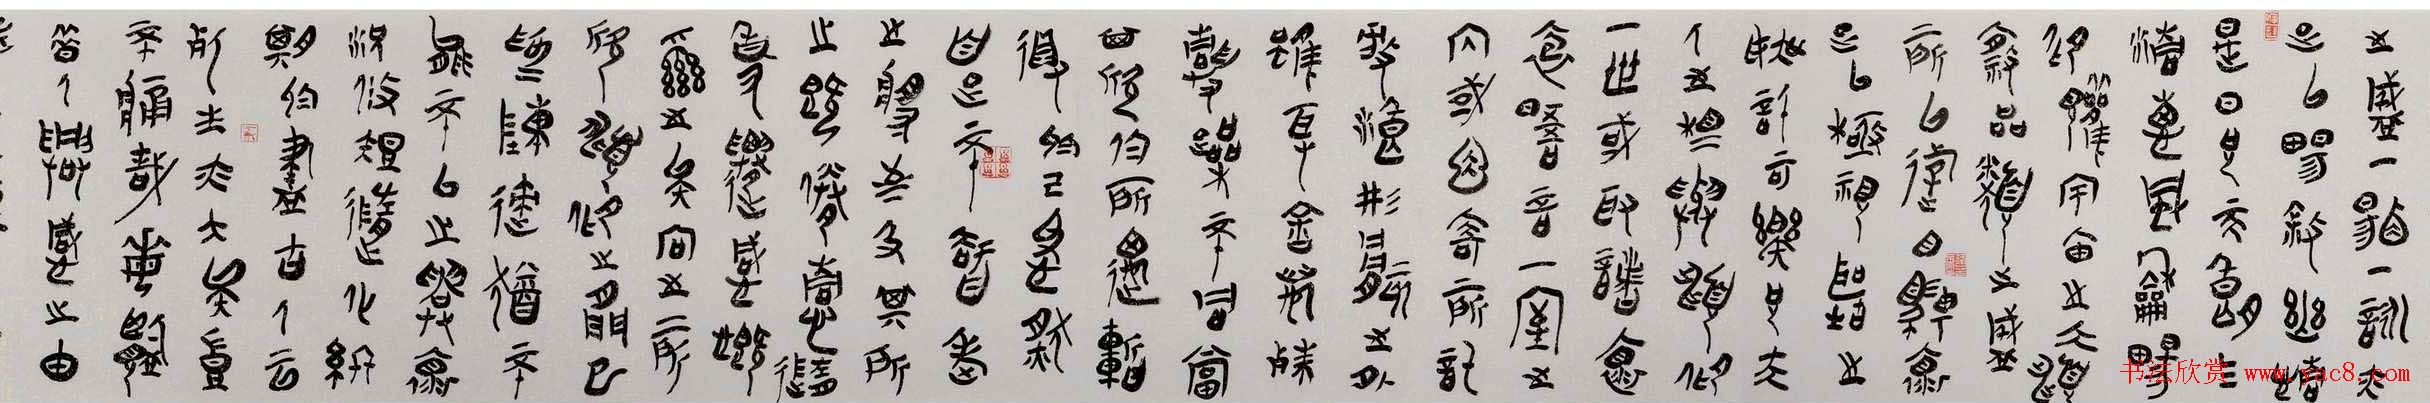 之盛一觴一詠亦
足以暢敘幽情
是日也天朗气
清惠風和暢
仰觀宇宙之大俯
察品類之盛
所以遊目騁懷
足以極視聽之
娛信可樂也夫
人之相與俯仰
一世或取諸懷
抱悟言一室之
內或因寄所託
放浪形骸之外
雖趣舍萬殊
靜躁不同當
其欣於所遇暫
得於己快然
自足不知老
之將至及其所
之既倦情隨
事遷感慨
係之矣向之所
欣俯仰之間已
為陳跡猶不
能不以之興懷
況修短隨化終
期於盡古人云
死生亦大矣豈
不痛哉每覽
昔人興感之由
书法欣赏 www.yac8.com